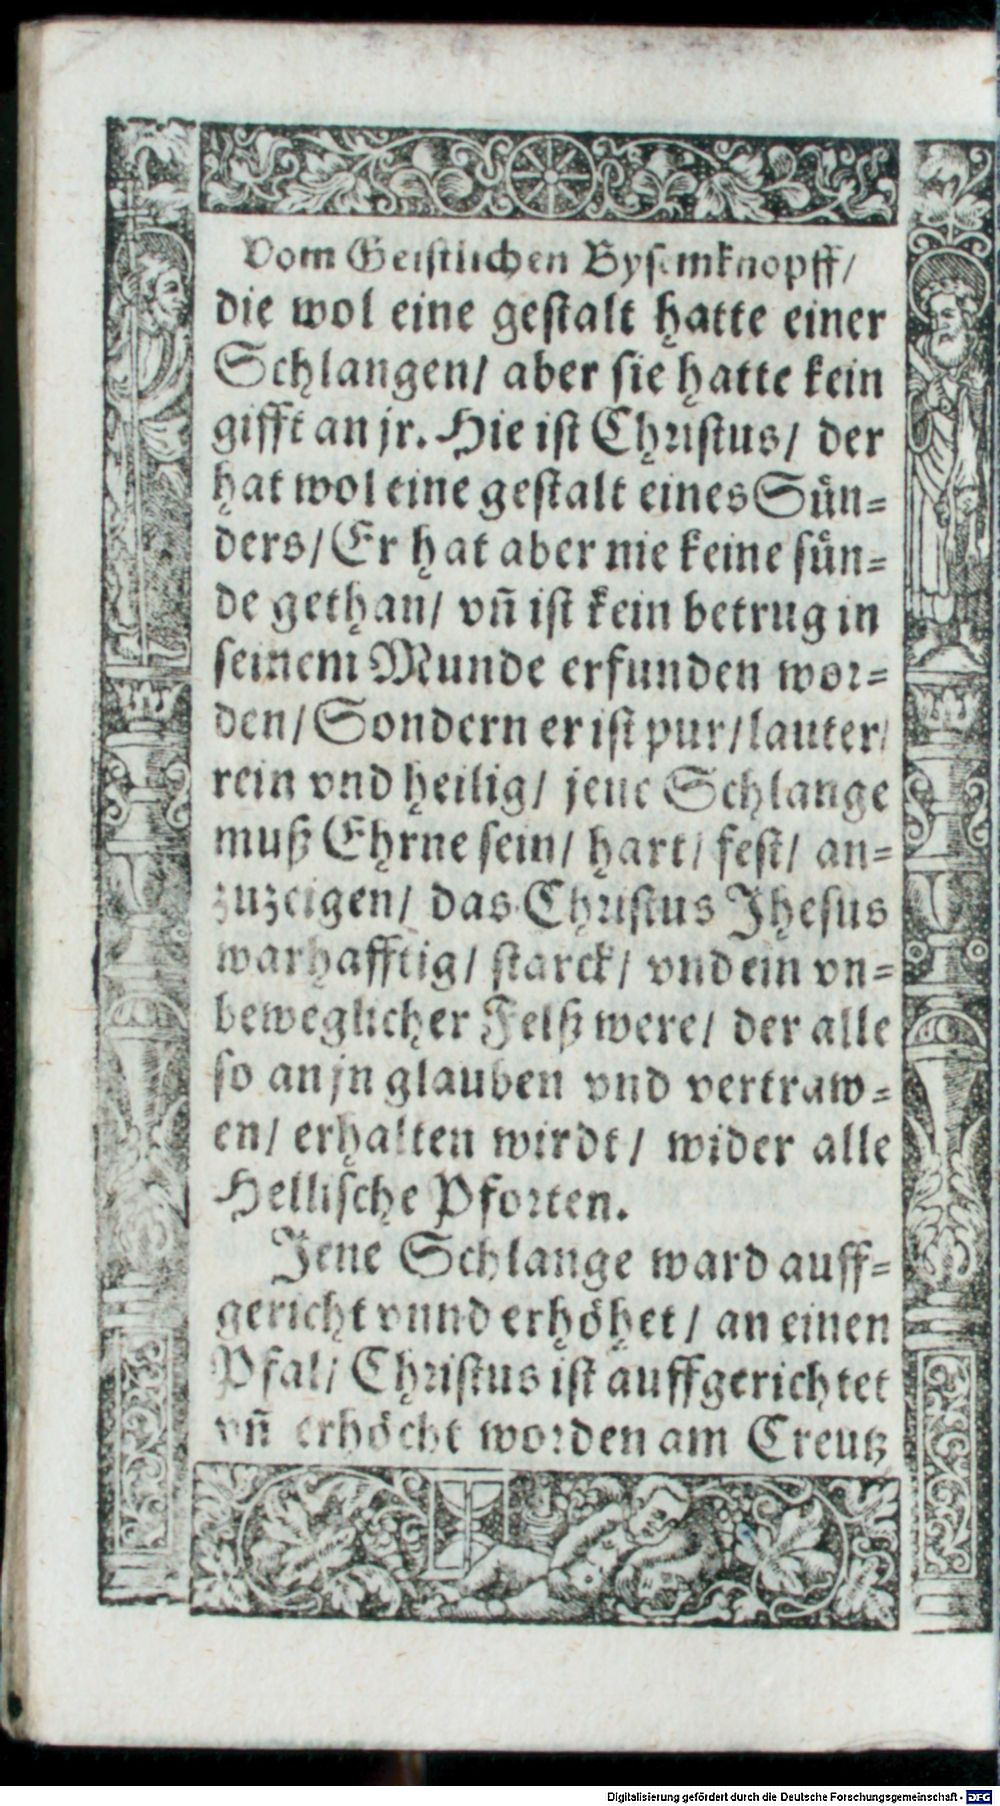 Vom Geistlichen Bysemknopff/
die wol eine gestalt hatte einer
Schlangen/ aber sie hatte kein
gifft an jr. Hie ist Christus/ der
hat wol eine gestalt eines Sün-
ders/ Er hat aber nie keine sün-
de gethan/ vñ ist kein betrug in
seinem Munde erfunden wor-
den/ Sondern er ist pur/ lauter/
rein vnd heilig/ jene Schlange
muß Ehrne sein/ hart/ fest/ an-
zuzeigen/ das Christus Jhesus
warhafftig/ starck/ vnd ein vn-
beweglicher Felß were/ der alle
so an jn glauben vnd vertraw-
en/ erhalten wirdt/ wider alle
Hellische Pforten.
Jene Schlange ward auff-
gericht vnnd erhöhet/ an einen
Pfal/ Christus ist auffgerichtet
vñ erhöcht worden am Creutz
Digitalisierung gefördert durch die Deutsche Forschungsgemeinschaft - DFG